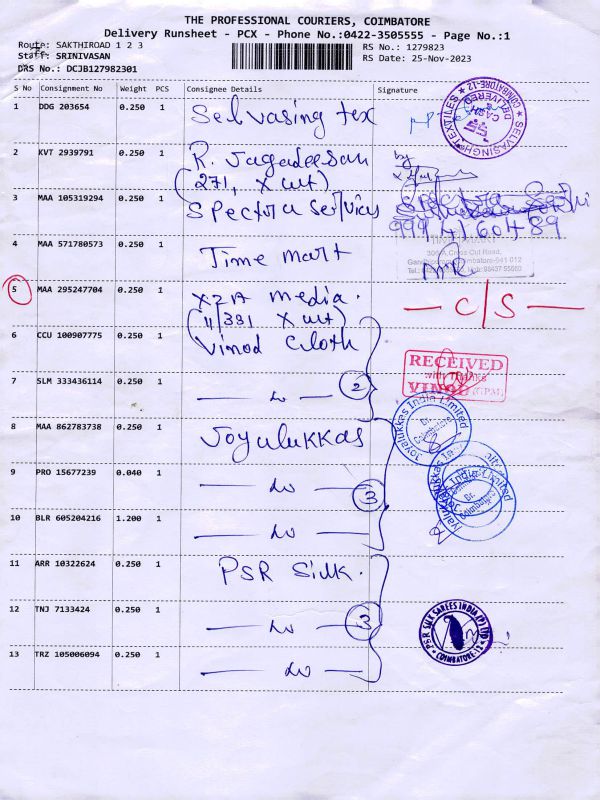 THE PROFESSIONAL COURIERS, COIMBATORE
Delivery Runsheet - PCX - Phone No.:0422-3505555 - Page No.:1
Route: SAKTHIROAD 1 2 3
RS No.: 1279823
Staff: SRINIVASAN
RS Date: 25-Nov-2023
DRS No.: DCJB127982301
S No Consignment No Weight PCS Consignee Details Signature
1 DDG 203654 0.250 1 Selvasing tex
SELVASINGH TEXTILES COIMBATORE-12 DELIVERED
2 KVT 2939791 0.250 1 R. Jagadeesan
(271, X cut) by
3 MAA 105319294 0.250 1 Spectra services
9994160489
4 MAA 571780573 0.250 1 Time mart
Cross Cut Road,
5 MAA 295247704 0.250 1 XZA media.
(11/381 X cut) C/S
6 CCU 100907775 0.250 1 Vinod cloth
RECEIVED
with THANKS
VINOD (GPM)
7 SLM 333436114 0.250 1 2
8 MAA 862783738 0.250 1 Joyalukkas
Joyalukkas India Limited Coimbatore
9 PRO 15677239 0.040 1 3
10 BLR 605204216 1.200 1
11 ARR 10322624 0.250 1 PSR Silk.
12 TNJ 7133424 0.250 1 3
PSR SILK SAREES INDIA (P) LTD COIMBATORE-12
13 TRZ 105006094 0.250 1